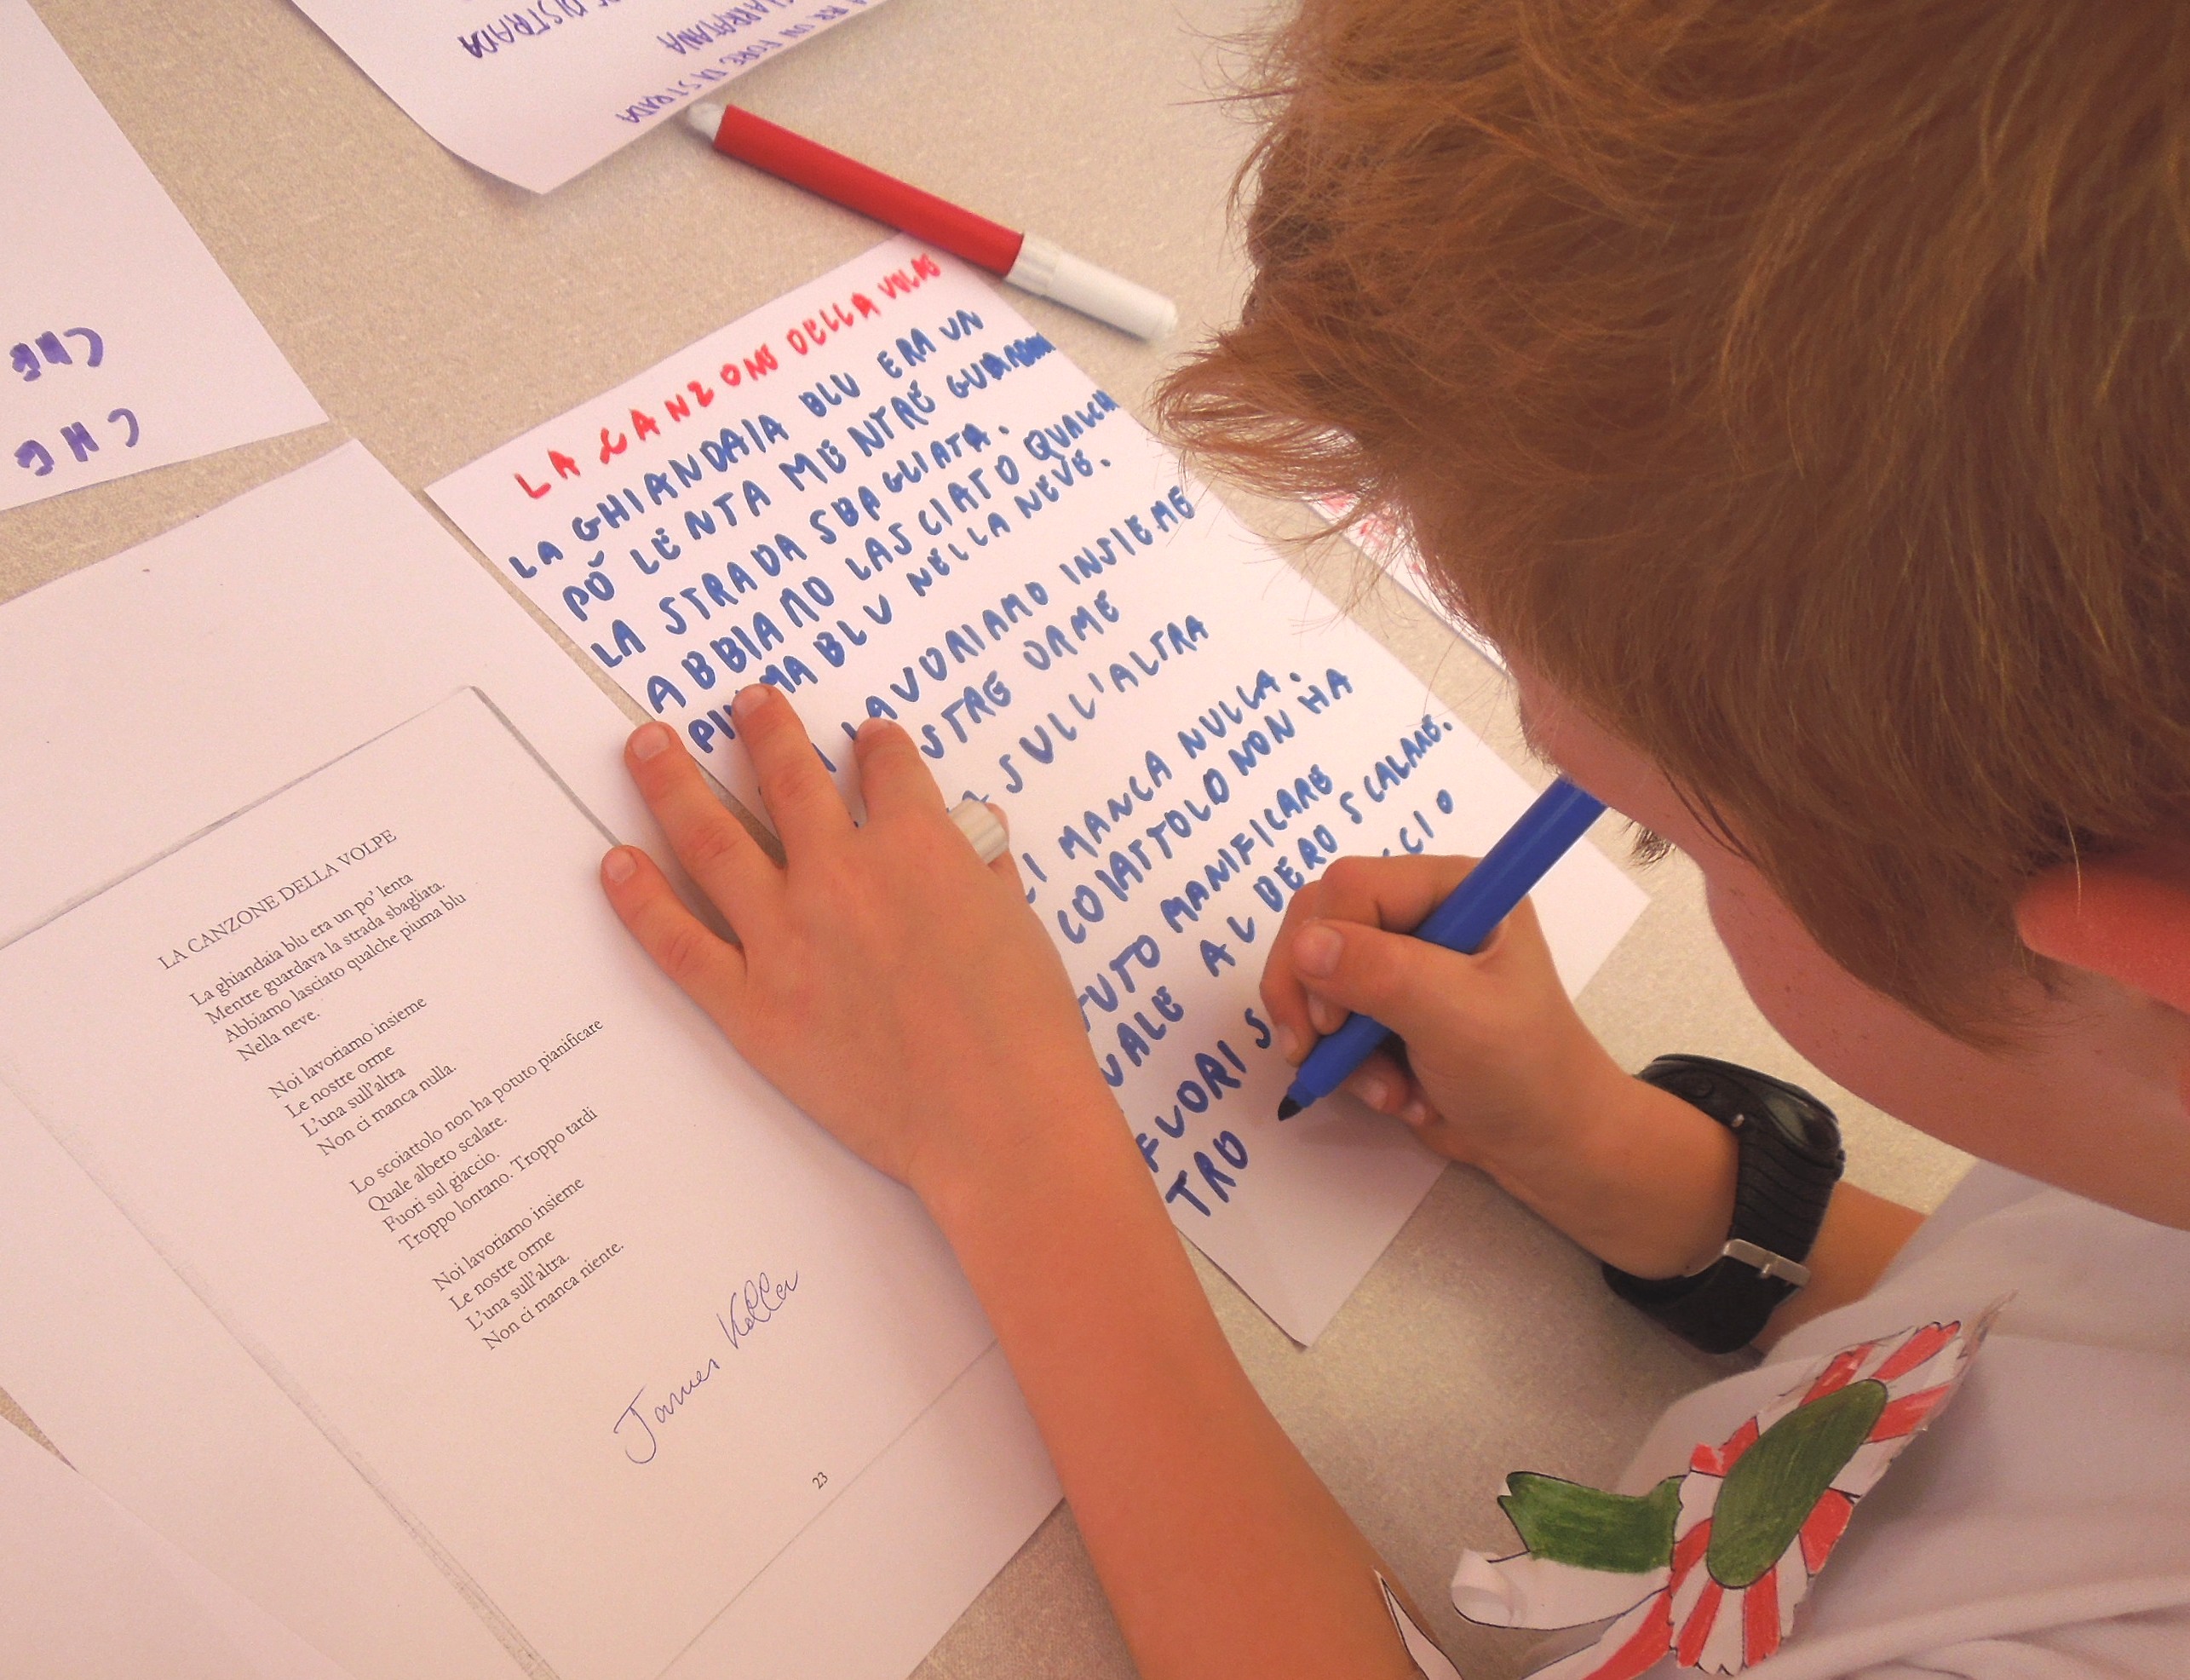 DI STRADA
CIARRATANA
FORE LA STRADA
CHE
CHE
LA CANZONE DELLA VOLPE
LA GHIANDAIA BLU ERA UN
PÒ LENTA MENTRE
LA STRADA SBAGLIATA.
ABBIAMO LASCIATO QUALCH
BLU NELLA NEVE.
LAVORIAMO INSIEME
ORME
SULL'ALTRA
CI MANCA NULLA.
COIATTOLO NON HA
TUTO MANIFICARE
ALBERO SCALARE.
FUORI S CCIO
TRO
LA CANZONE DELLA VOLPE
La ghiandaia blu era un po' lenta
Mentre guardava la strada sbagliata.
Abbiamo lasciato qualche piuma blu
Nella neve.
Noi lavoriamo insieme
Le nostre orme
L'una sull'altra
Non ci manca nulla.
Lo scoiattolo non ha potuto pianificare
Quale albero scalare.
Fuori sul giaccio.
Troppo lontano. Troppo tardi
Noi lavoriamo insieme
Le nostre orme
L'una sull'altra.
Non ci manca niente.
James Koller
23